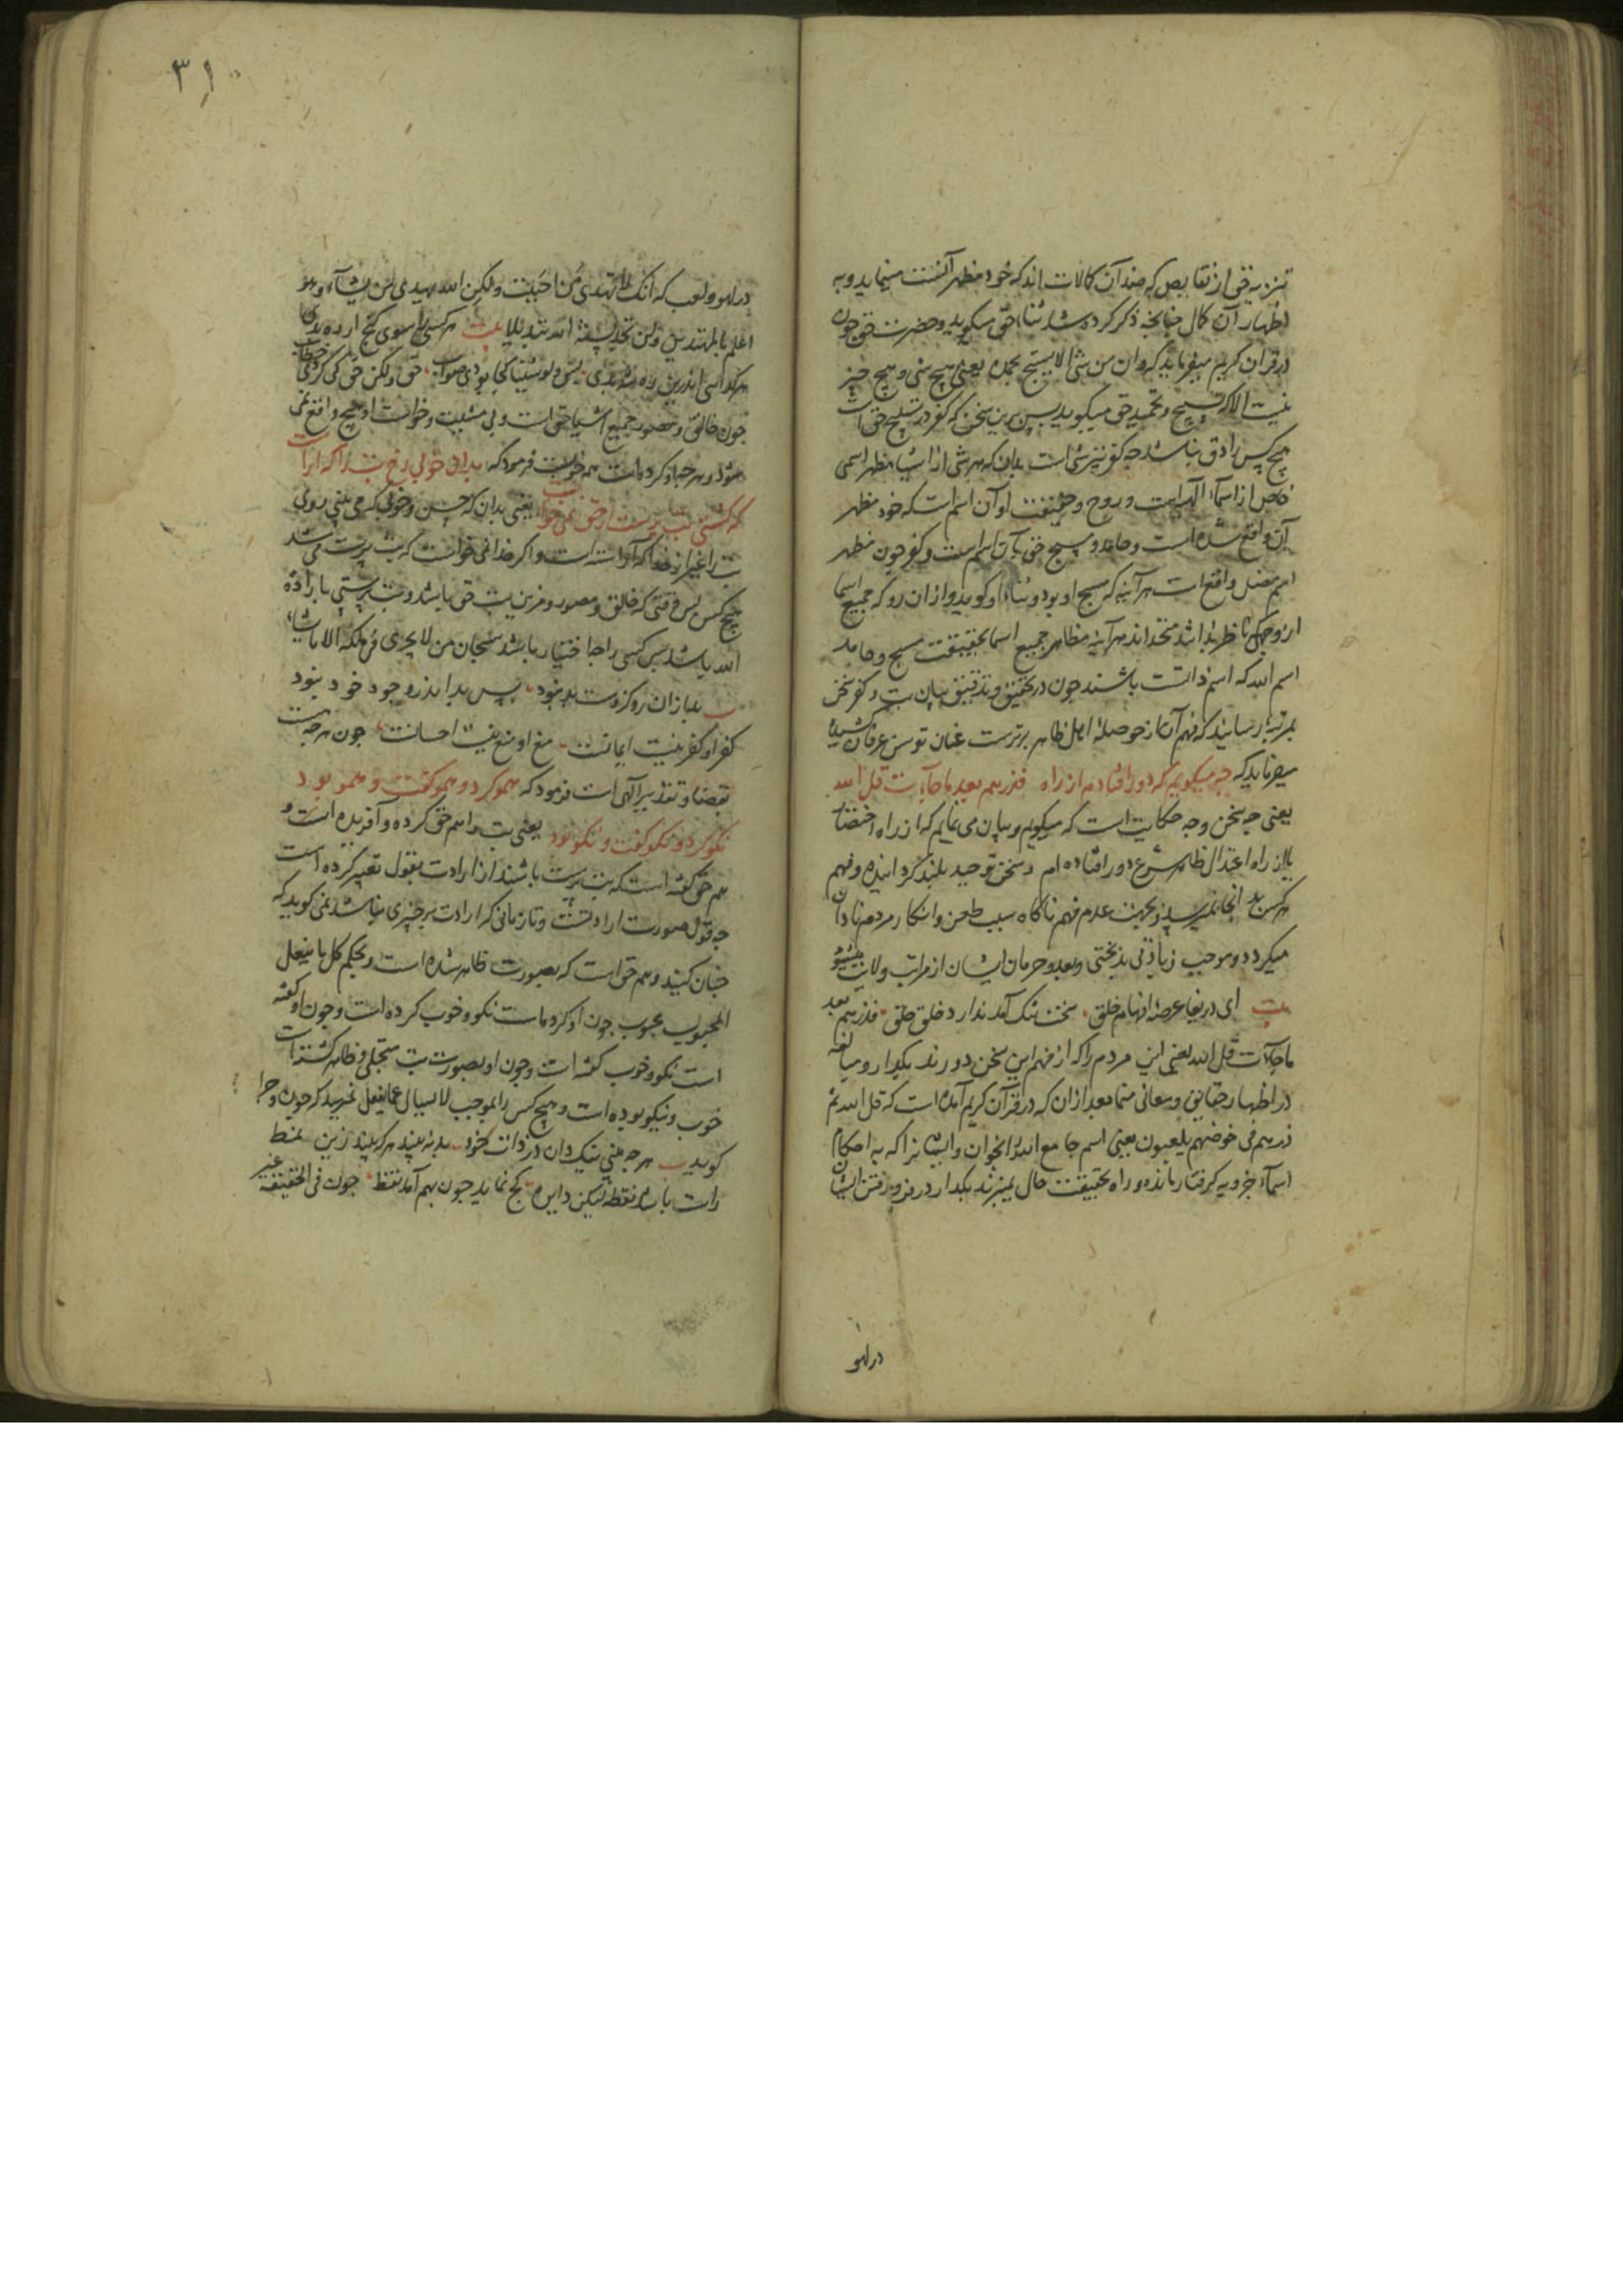 تنزیه حق از نقایص که ضد آن کمالات‌اند که خود مظهر آنست مینماید و به
اظهار آن کمال چنانچه ذکر کرده شد ثناء حق میکوید و حضرت حق چون
در قران کریم میفرماید که وان من شئ الا یسبح بحمده یعنی هیچ شئ و هیچ چیز
نیست الا که تسبیح و تحمید حق میکوید پس برین سخن که کفر در تسبیح حق است
هیچ کس را دق نباشد چه کفر نیز شئ است بدان که هر شئ از اشیا مظهر اسمی
خاص از اسماء الهی است و روح و حقیقت او آن اسم است که خود مظهر
آن واقع شده است و حامد و مسبح حق بآن اسم است و کفر چون مظهر
اسم مضل واقع است هر آینه که مسبح او بود و ثناء او کوید و از ان رو که جمیع اسما
از وجهی ناظر بذات‌اند متحداند هر آینه مظاهر جمیع اسما بحقیقت مسبح و حامد
اسم الله که اسم ذاتست باشند چون در تحقیق و تدقیق بیان بت و کفر سخن
بمرتبه رسانید که فهم آن از حوصلهٔ اهل ظاهر برترست عنان توسن عرفان کشیده
میفرماید که چه میکویم که دور افتادم از راه فذرهم بعد ما جآءت قل الله
یعنی چه سخن و چه حکایت است که میکویم و بیان می نمایم که از راه اختصار
یا از راه اعتدال ظاهر شرع دور افتاده‌ام و سخن توحید بلند کردانیده و فهم
هر کس بد انجا نمیرسد و بجهت عدم فهم ناکاه سبب طعن و انکار مردم نادان
میکردد و موجب زیادتی بدبختی و بعد و حرمان ایشان از مراتب ولایت میشود
بیت ای دریغا عرصهٔ افهام خلق سخت تنک آمد ندارد خلق حلق فذرهم بعد
ما جاءت قل الله یعنی این مردم را که از فهم این سخن دورند بکذار و مبالغه
در اظهار حقایق و معانی منما بعد از ان که در قرآن کریم آمده است که قل الله ثم
ذرهم فی خوضهم یلعبون یعنی اسم جامع الله را بخوان و ایشانرا که به احکام
اسماء جزویه کرفتار مانده و راه بحقیقت حال نمیبرند بکذار در فرو رفتن ایشان
در لهو
۳۱۰
در لهو و لعب که انک لا تهدی من احببت ولکن الله یهدی من یشآء وهو
اعلم بالمهتدین ولن تجد لسنة الله تبدیلا بیت هر کسی را سوی کنج ار ره بدی
هر کدا کسی اندرین ره شه بدی لیس ولو شئنا کجا بودی صواب حق ولکن حق کی کردی خطاب
چون خالق و مصور جمیع اشیا حق است و بی مشیت و خواست او هیچ واقع نمی
شود و هر چه او کرده است همه خوبست فرمود که بدان خوبی رخ بت را که آراست
که کشتی بت پرست ار حق نمی خواست یعنی بدان که حسن و خوبی که می بینی روی
بت را غیر از خدا که آراسته است و اکر خدا نمی خواست که بت پرست می شد
هیچ کس پس وقتی که خالق و مصور و مزین بت حق باشد و بت پرستی بارادهٔ
الله باشد پس کسی را چه اختیار باشد سبحان من لا یجری فی ملکه الا ما یشاء
بیت بد از ان رو کزوست بد نبود پس بد اندر وجود خود نبود
کفر او کفر نیست ایمانست منع او منع نیست احسانست چون هر چه هست
بقضا و تقدیر آلهی است فرمود که همو کرد و همو کفت و همو بود
نکو کرد و نکو کفت و نکو بود یعنی بت را هم حق کرده و آفریده است و
هم حق کفته است که بت پرست باشند از ارادت بقول تعبیر کرده است
چه قول صورت ارادتست و تا زمانی که ارادت بر چیزی نباشد نمی کوید که
چنان کنید و هم حق است که بصورت ظاهر شده است و بحکم کل ما یفعل
المحبوب محبوب چون او کرده است نکو و خوب کرده است و چون او کفته
است نکو و خوب کفته است و چون او بصورت بت متجلی و ظاهر کشته است
خوب و نیکو بوده است و هیچ کس را بموجب لا یسال عما یفعل نمیرسد که چون و چرا
کوید بیت هر چه بینی نیک دان در ذات خود بد نه بیند هر که بیند زین نمط
راست باشد نقطه لیکن دایره کج نماید چون بهم آمد نقط چون فی الحقیقه غیر